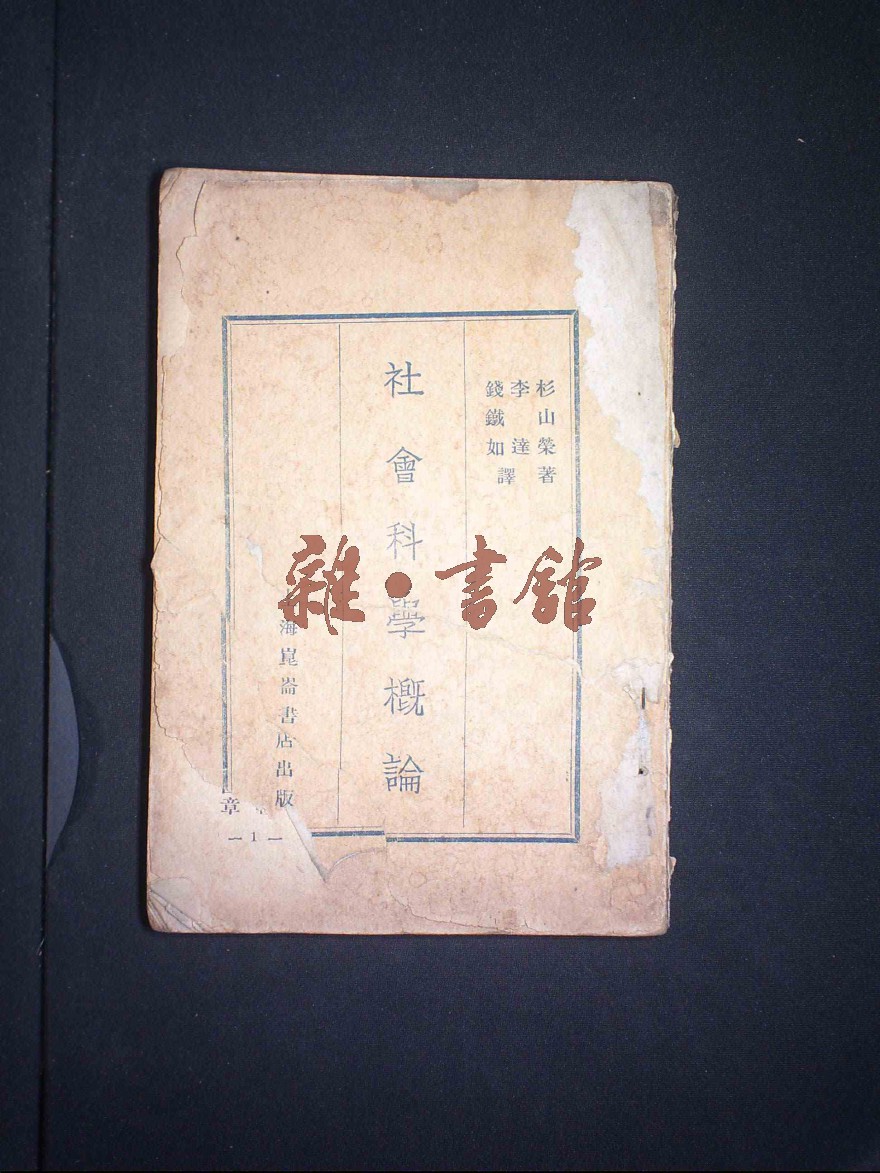 杉山榮著
李達
錢鐵如譯
社會科學概論
海崑崙書店出版
章
— 1 —
雜·書館